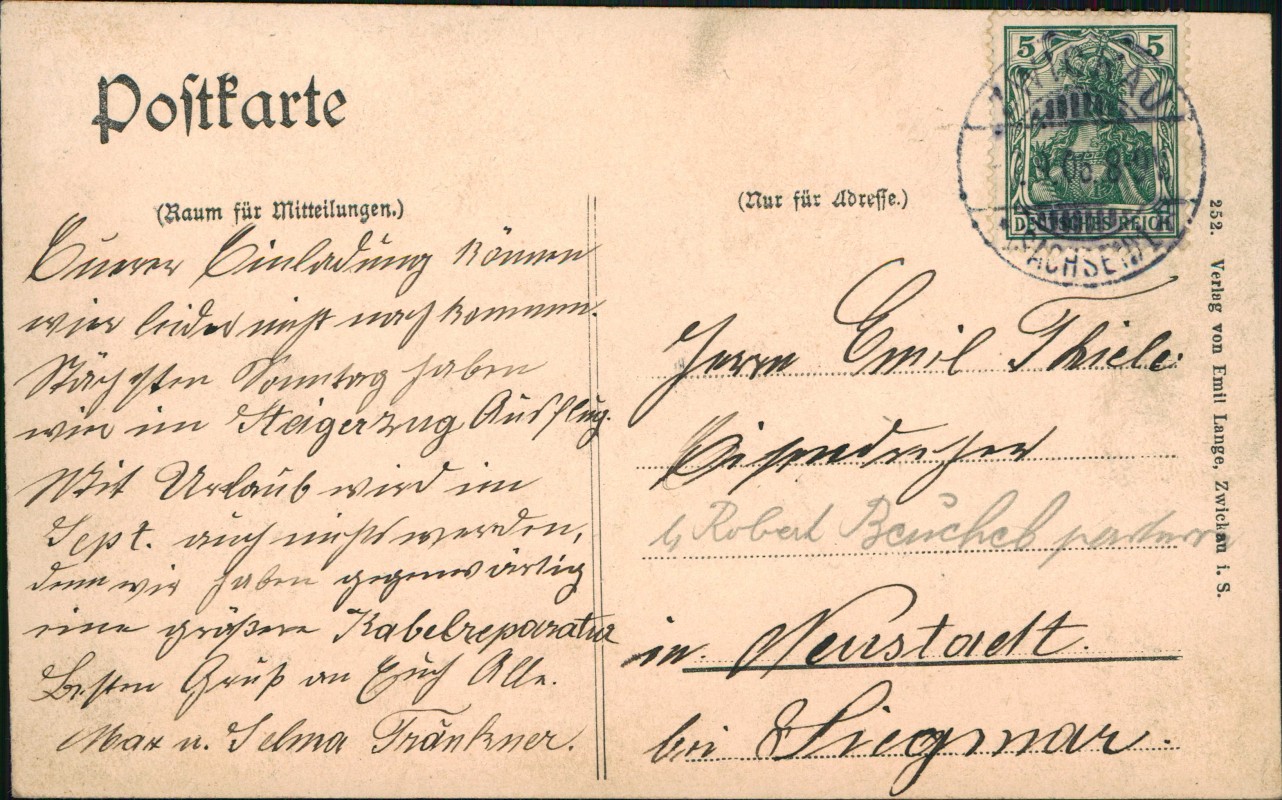 Postkarte
(Raum für Mitteilungen.)
Euerer Einladung können
wir leider nicht nach kommen.
Nächsten Sonntag haben
wir im Steigerzug Ausflug.
Mit Urlaub wird im
Sept. auch nichts werden,
denn wir haben gegenwärtig
eine größere Kabelreparatur
Besten Gruß an Euch Alle.
Max u. Selma Tränkner.
(Nur für Adresse.)
5 5
DEUTSCHES REICH
ZWICKAU
06. 8-9V
SACHSEN
Herrn Emil Thiele
Eisendreher
b. Robert Beuchel parterre
in Neustadt.
bei Siegmar.
252. Verlag von Emil Lange, Zwickau i. S.